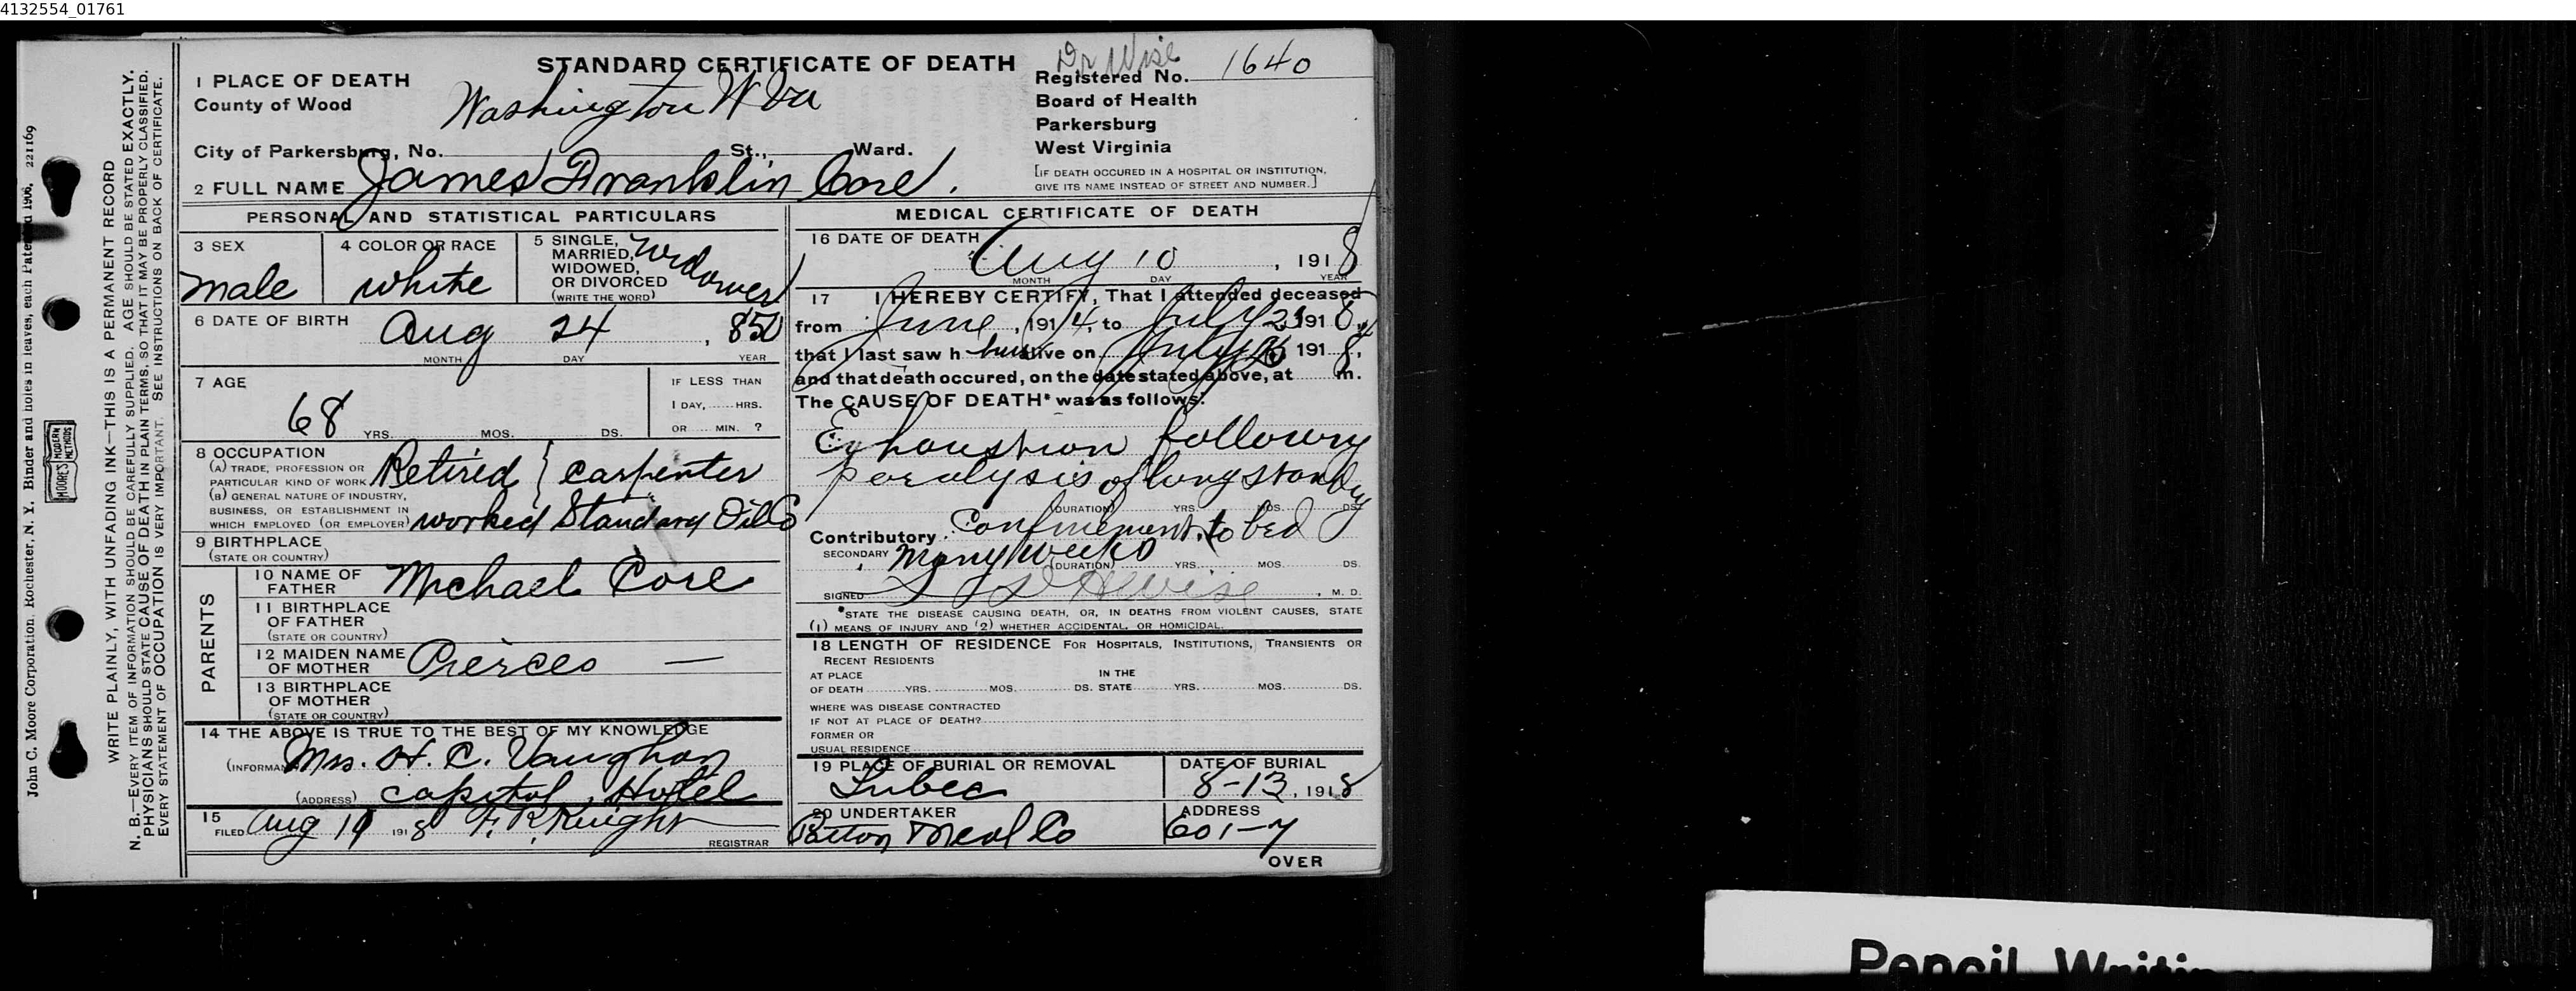 4132554_01761
STANDARD CERTIFICATE OF DEATH
Dr Wise
1 PLACE OF DEATH
Registered No. 1640
County of Wood
Washington W Va
Board of Health
Parkersburg
City of Parkersburg, No. St., Ward.
West Virginia
[IF DEATH OCCURED IN A HOSPITAL OR INSTITUTION,
GIVE ITS NAME INSTEAD OF STREET AND NUMBER.]
2 FULL NAME James Franklin Core.
PERSONAL AND STATISTICAL PARTICULARS
3 SEX
male
4 COLOR OR RACE
white
5 SINGLE,
MARRIED,
WIDOWED,
OR DIVORCED
(WRITE THE WORD)
Widower
6 DATE OF BIRTH Aug 24, 850
MONTH DAY YEAR
7 AGE
68 YRS. MOS. DS.
IF LESS THAN
1 DAY, HRS.
OR MIN. ?
8 OCCUPATION
(A) TRADE, PROFESSION OR
PARTICULAR KIND OF WORK Retired { carpenter
(B) GENERAL NATURE OF INDUSTRY,
BUSINESS, OR ESTABLISHMENT IN
WHICH EMPLOYED (OR EMPLOYER) worked Standard Oil Co
9 BIRTHPLACE
(STATE OR COUNTRY)
PARENTS
10 NAME OF
FATHER Michael Core
11 BIRTHPLACE
OF FATHER
(STATE OR COUNTRY)
12 MAIDEN NAME
OF MOTHER Pierces —
13 BIRTHPLACE
OF MOTHER
(STATE OR COUNTRY)
14 THE ABOVE IS TRUE TO THE BEST OF MY KNOWLEDGE
(INFORMANT Mrs. H. C. Vaughan
(ADDRESS) Capitol Hotel
15
FILED Aug 191 8 F. R. Knight
REGISTRAR
MEDICAL CERTIFICATE OF DEATH
16 DATE OF DEATH
Aug 10, 191 8
MONTH DAY YEAR
17 I HEREBY CERTIFY, That I attended deceased
from June, 191 4, to July 191 8,
that I last saw h him alive on July 191 8,
and that death occured, on the date stated above, at m.
The CAUSE OF DEATH* was as follows:
Exhaustion following
paralysis of long standing
(DURATION) YRS. MOS. DS.
Contributory Confinement to bed
SECONDARY many weeks
(DURATION) YRS. MOS. DS.
SIGNED Wise, M. D.
*STATE THE DISEASE CAUSING DEATH, OR, IN DEATHS FROM VIOLENT CAUSES, STATE
(1) MEANS OF INJURY AND (2) WHETHER ACCIDENTAL, OR HOMICIDAL.
18 LENGTH OF RESIDENCE FOR HOSPITALS, INSTITUTIONS, TRANSIENTS OR
RECENT RESIDENTS
AT PLACE IN THE
OF DEATH YRS. MOS. DS. STATE YRS. MOS. DS.
WHERE WAS DISEASE CONTRACTED
IF NOT AT PLACE OF DEATH?
FORMER OR
USUAL RESIDENCE
19 PLACE OF BURIAL OR REMOVAL
Lubec
DATE OF BURIAL
8-13, 191 8
20 UNDERTAKER
ADDRESS
601-7
OVER
John C. Moore Corporation, Rochester, N. Y. Binder and holes in leaves, each Patented 1906, 221169
MOORE'S MODERN METHODS
WRITE PLAINLY, WITH UNFADING INK—THIS IS A PERMANENT RECORD
N. B.—EVERY ITEM OF INFORMATION SHOULD BE CAREFULLY SUPPLIED. AGE SHOULD BE STATED EXACTLY.
PHYSICIANS SHOULD STATE CAUSE OF DEATH IN PLAIN TERMS, SO THAT IT MAY BE PROPERLY CLASSIFIED.
EVERY STATEMENT OF OCCUPATION IS VERY IMPORTANT. SEE INSTRUCTIONS ON BACK OF CERTIFICATE.
Pencil